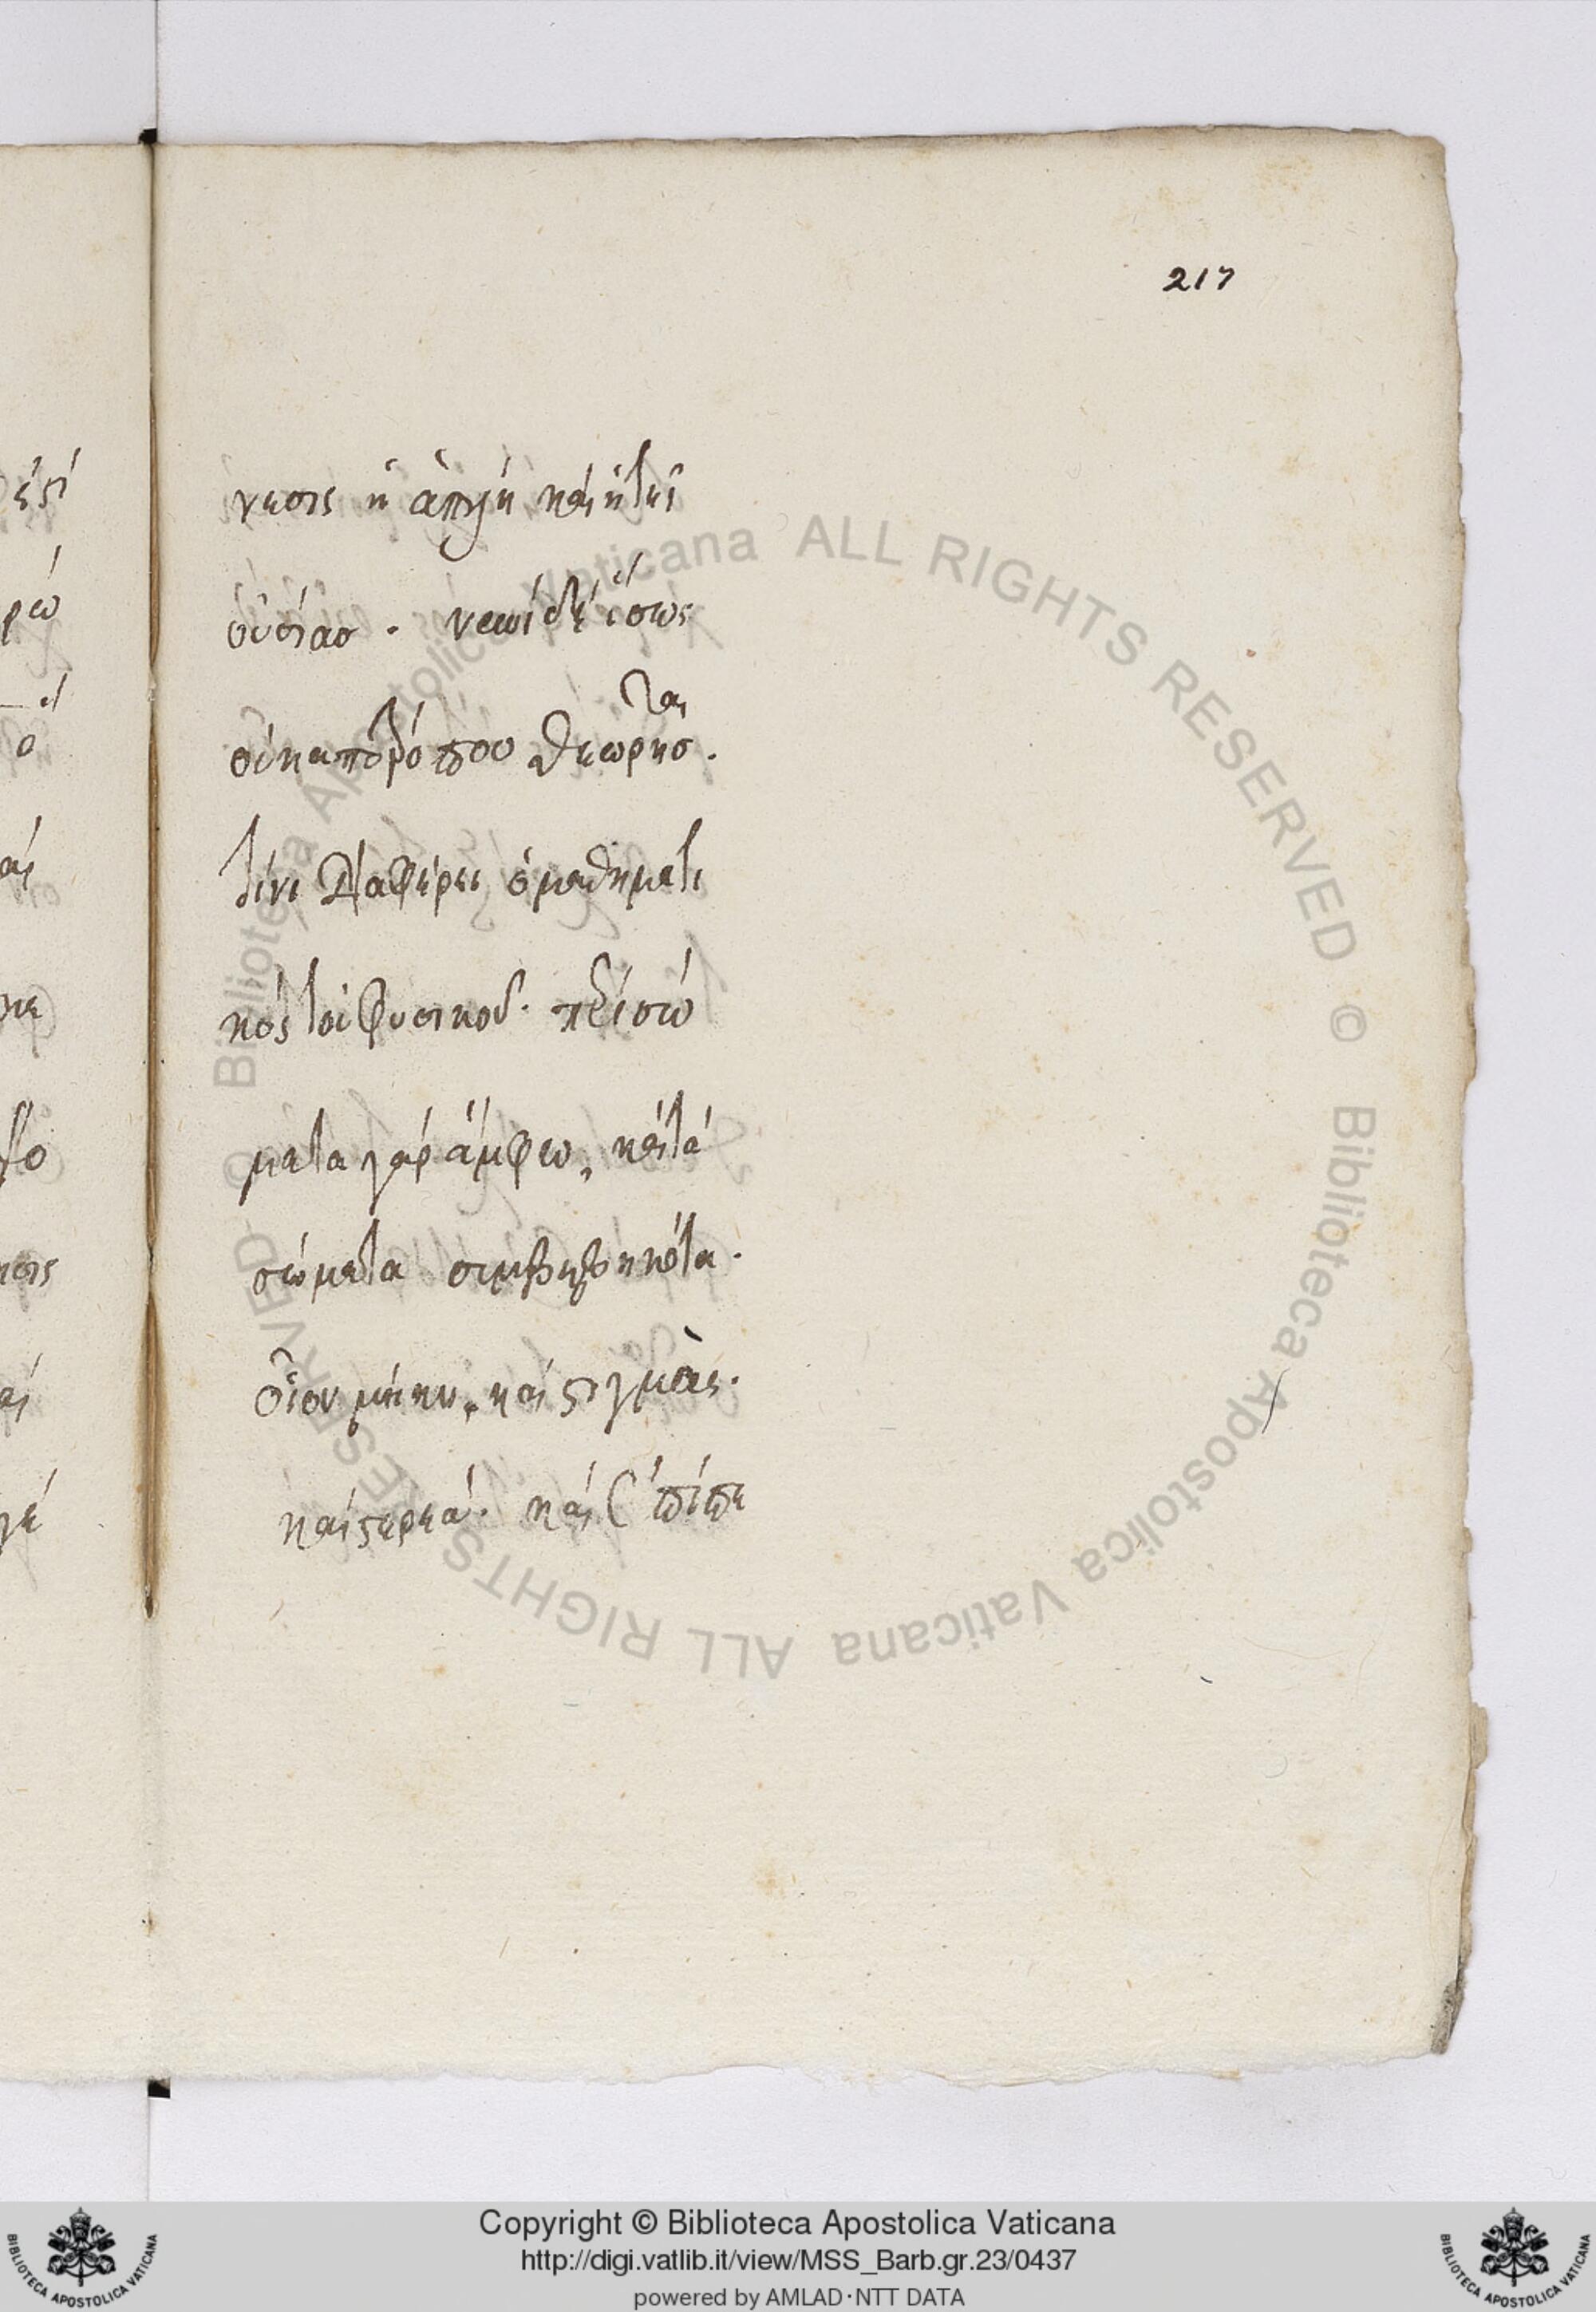 217
νεσις ἡ ἁπλῆ καὶ ἡ τῆς
οὐσίας . νεωὶ δὲ ἴσως
οὐκ ἀπὸ τρόπου θεωρῆσαι.
τίνι διαφέρει ὁ μαθηματι
κὸς τοῦ φυσικοῦ. περὶ σώ
ματα γὰρ ἄμφω, καὶ τὰ
σώματα συμβεβηκότα.
οἷον μήκη, καὶ στιγμὰς.
καὶ στερεά. καὶ ἐπίπε
ἐστὶ
ρω
αὶ
κε
το
ησις
αὶ
γέ
Biblioteca Apostolica Vaticana ALL RIGHTS RESERVED © Biblioteca Apostolica Vaticana ALL RIGHTS RESERVED ©
Copyright © Biblioteca Apostolica Vaticana
http://digi.vatlib.it/view/MSS_Barb.gr.23/0437
powered by AMLAD·NTT DATA
BIBLIOTECA APOSTOLICA VATICANA
BIBLIOTECA APOSTOLICA VATICANA